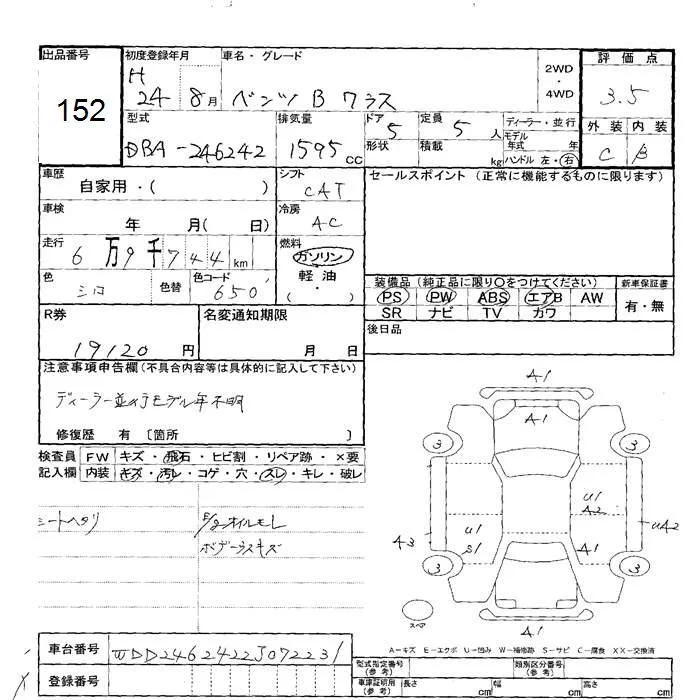 出品番号 初度登録年月 車名・グレード 2WD・4WD 評価点
152 H 24 8月 ベンツ B クラス 3.5
型式 排気量 ドア 5 定員 5人 ディーラー・並行 外装 内装
DBA-246242 1595 CC 形状 積載 kg モデル年式 年 ハンドル 左・右 C B
車歴 シフト セールスポイント (正常に機能するものに限ります)
自家用・( ) CAT
車検 年 月( 日) 冷房 AC
走行 6万9千744km 燃料 ガソリン
色 シロ 色替 色コード 650 軽油・( )
装備品 (純正品に限り○をつけてください) 新車保証書
PS PW ABS エアB AW 有・無
SR ナビ TV カワ
R券 名変通知期限 後日品
19120 円 月 日
注意事項申告欄 (不具合内容等は具体的に記入して下さい)
ディーラー並行モデル年不明
修復歴 有 〔箇所 〕
検査員 FW キズ・飛石・ヒビ割・リペア跡・×要
記入欄 内装 キズ・汚レ・コゲ・穴・スレ・キレ・破レ
シートヘタリ E/gオイルモレ
ボデーラスキズ
A1
A1
3 3
U1
A2
A3 U1 UA2
S1 A1
3 3
スペア A1
A-キズ E-エクボ U-凹み W-補修跡 S-サビ C-腐食 XX-交換済
車台番号 WDD2462422J072231 型式指定番号(参考) 類別区分番号(参考)
登録番号 車庫証明用(参考) 長さ cm 幅 cm 高さ cm